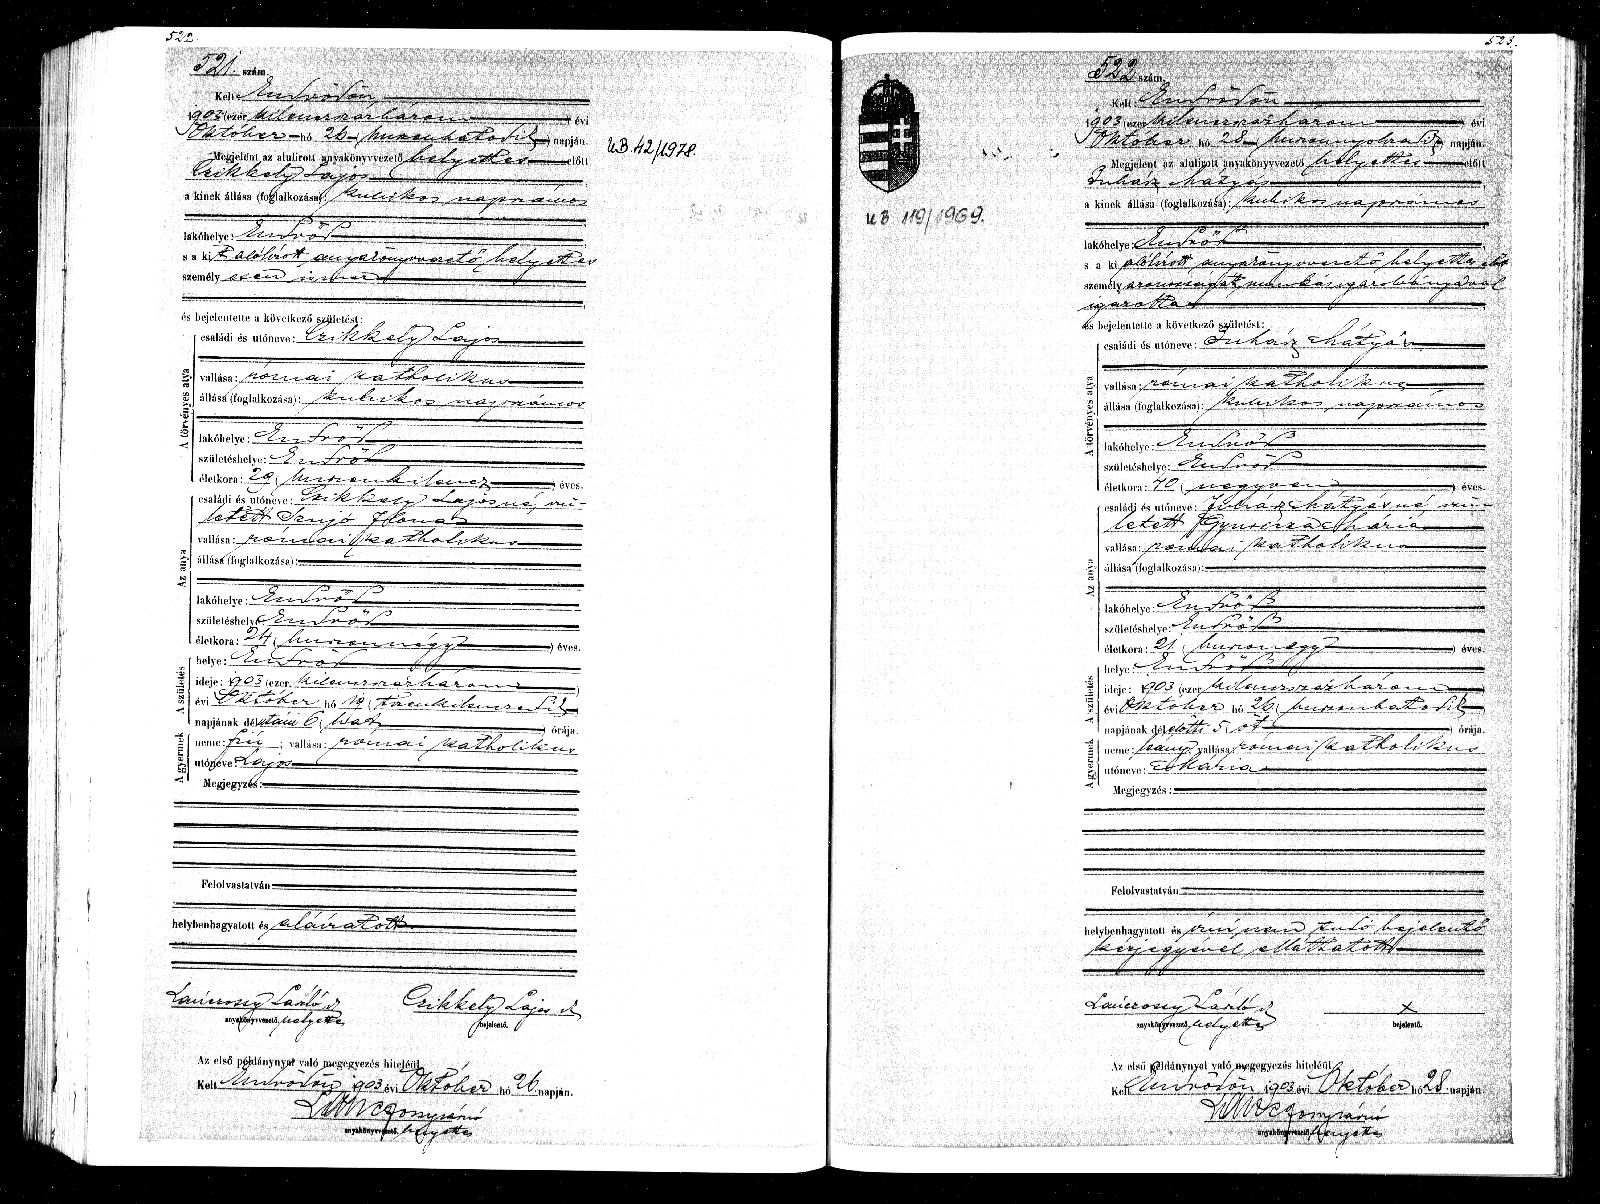 522.
521. szám.
Kelt Endrődön
1903 (ezer kilenczszázhárom) évi
Október hó 26 (huszonhatodik) napján.
Megjelent az alulirott anyakönyvvezető helyettes előtt
Czikkely Lajos
a kinek állása (foglalkozása): kubikos napszámos
lakóhelye: Endrőd
s a kit alólírott anyakönyvvezető helyettes
személyesen ismer
és bejelentette a következő születést:
A törvényes atya
családi és utóneve: Czikkely Lajos
vallása: római katholikus
állása (foglalkozása): kubikos napszámos
lakóhelye: Endrőd
születéshelye: Endrőd
életkora: 29 (huszonkilencz) éves.
Az anya
családi és utóneve: Czikkely Lajosné, szü-
letett Ilona
vallása: római katholikus
állása (foglalkozása):
lakóhelye: Endrőd
születéshelye Endrőd
életkora: 24 (huszonnégy) éves.
A születés
helye: Endrőd
ideje: 1903 (ezer kilenczszázhárom)
évi Október hó 19 (tizenkilenczedik)
napjának délután 6 (hat) órája.
A gyermek
neme: fiú; vallása: római katholikus
utóneve: Lajos
Megjegyzés:
Felolvastatván
helybenhagyatott és aláiratott
László Czikkely Lajos
anyakönyvvezető helyettes bejelentő.
Az első példánynyal való megegyezés hiteléül
Kelt Endrődön 1903 évi Október hó 26 napján.
anyakönyvvezető helyettes
UB 42/1978.
UB 119/1969.
523.
522 szám.
Kelt: Endrődön
1903 (ezer kilenczszázhárom) évi
Október hó 28 (huszonnyolczadik) napján.
Megjelent az alulirott anyakönyvvezető helyettes előtt
Juhász Mátyás
a kinek állása (foglalkozása): kubikos napszámos
lakóhelye: Endrőd
s a ki alólírott anyakönyvvezető helyettes előtt
személyazonosságát munkásigazolványával
igazolta
és bejelentette a következő születést:
A törvényes atya
családi és utóneve: Juhász Mátyás
vallása: római katholikus
állása (foglalkozása): kubikos napszámos
lakóhelye: Endrőd
születéshelye: Endrőd
életkora: 40 (negyven) éves.
Az anya
családi és utóneve: Juhász Mátyásné, szü-
letett Mária
vallása: római katholikus
állása (foglalkozása):
lakóhelye: Endrőd
születéshelye: Endrőd
életkora: 21 (huszonegy) éves.
A születés
helye: Endrőd
ideje: 1903 (ezer kilenczszázhárom)
évi Október hó 26 (huszonhatodik)
napjának délelőtti 5 (öt) órája.
A gyermek
neme: leány; vallása: római katholikus
utóneve: Mária
Megjegyzés:
Felolvastatván
helybenhagyatott és írni nem tudó bejelentő
kézjegyével elláttatott
László x
anyakönyvvezető helyettes bejelentő.
Az első példánynyal való megegyezés hiteléül
Kelt Endrődön 1903 évi Október hó 28 napján.
anyakönyvvezető helyettes